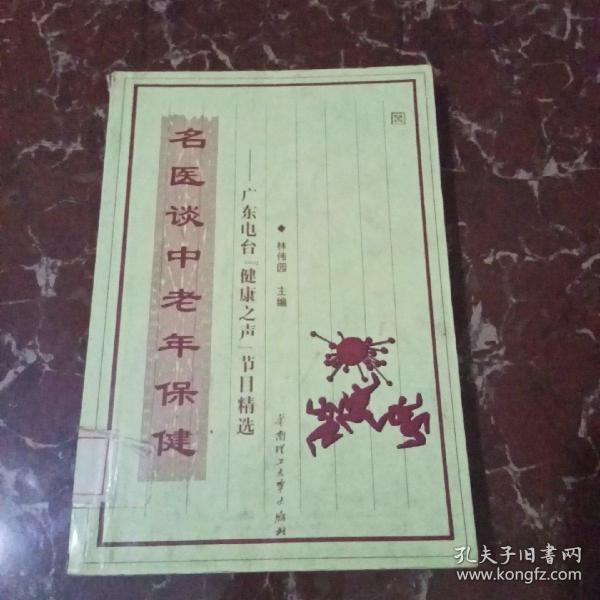 名医谈中老年保健
——广东电台『健康之声』节目精选
◆ 林伟园 主编
华南理工大学出版社
孔夫子旧书网
www.kongfz.com